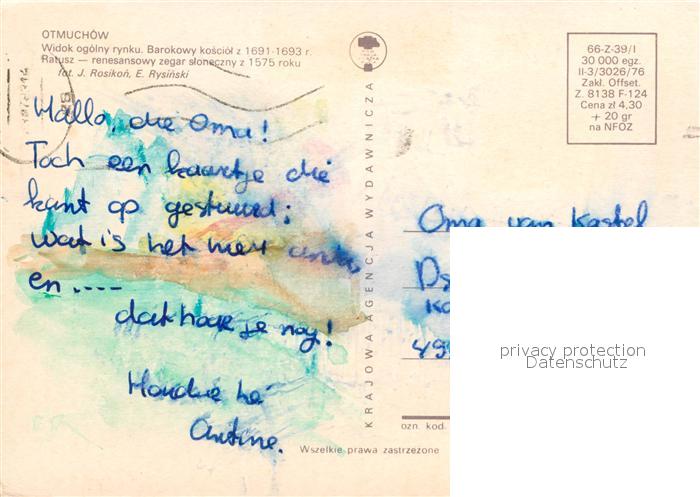 OTMUCHÓW
Widok ogólny rynku. Barokowy kościół z 1691-1693 r.
Ratusz — renesansowy zegar słoneczny z 1575 roku
fot. J. Rosikoń, E. Rysiński
66-Z-39/I
30 000 egz.
II-3/3026/76
Zakł. Offset.
Z. 8138 F-124
Cena zł 4,30
+ 20 gr
na NFOZ
KRAJOWA AGENCJA WYDAWNICZA
Hallo, die Oma!
Toch een kaartje die
kant op gestuurd;
wat is het weer
en ----
dat hoor je nog!
Houdoe hè
Oma van Kastel
ozn. kod.
Wszelkie prawa zastrzeżone
privacy protection
Datenschutz